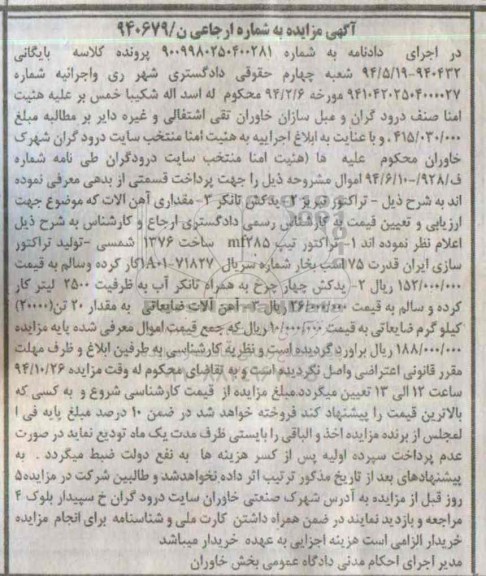 آگهی مزایده به شماره ارجاعی ن/۹۴۰۶۷۹
در اجرای دادنامه به شماره ۹۰۰۹۹۸۰۲۵۰۴۰۰۲۸۱ پرونده کلاسه بایگانی
۹۴۰۴۳۲-۹۴/۵/۱۹ شعبه چهارم حقوقی دادگستری شهر ری واجرائیه شماره
۹۴۱۰۴۲۰۲۵۰۴۰۰۰۰۲۷ مورخه ۹۴/۲/۶ محکوم له اسد اله شکیبا خمس بر علیه هئیت
امنا صنف درود گران و مبل سازان خاوران تقی اشتغالی و غیره دایر بر مطالبه مبلغ
۴۱۵/۰۳۰/۰۰۰، و با عنایت به ابلاغ اجراییه به هئیت امنا منتخب سایت درود گران شهرک
خاوران محکوم علیه ها (هئیت امنا منتخب سایت درودگران طی نامه شماره
ف/۹۲۸/-۹۴/۶/۱۰ اموال مشروحه ذیل را جهت پرداخت قسمتی از بدهی معرفی نموده
اند به شرح ذیل - تراکتور تبریز ۲- یدکش تانکر ۳- مقداری آهن آلات که موضوع جهت
ارزیابی و تعیین قیمت به کارشناس رسمی دادگستری ارجاع و کارشناس به شرح ذیل
اعلام نظر نموده اند ۱- تراکتور تیپ mf۲۸۵ ساخت ۱۳۷۶ شمسی -تولید تراکتور
سازی ایران قدرت ۷۵ اسب بخار شماره سریال A۰۱-۷۱۸۲۷ کار کرده وسالم به قیمت
۱۵۲/۰۰۰/۰۰۰ ریال ۲- یدکش چهار چرخ به همراه تانکر آب به ظرفیت ۲۵۰۰ لیتر کار
کرده و سالم به قیمت ۲۶/۰۰۰/۰۰۰ ریال ۳- آهن آلات ضایعاتی به مقدار ۲۰ تن(۲۰۰۰۰)
کیلو گرم ضایعاتی به قیمت ۱۰/۰۰۰/۰۰۰ ریال که جمع قیمت اموال معرفی شده پایه مزایده
۱۸۸/۰۰۰/۰۰۰ ریال براورد گردیده است و نظریه کارشناسی به طرفین ابلاغ و ظرف مهلت
مقرر قانونی اعتراضی واصل نگردیده است و به تقاضای محکوم له وقت مزایده ۹۴/۱۰/۲۶
ساعت ۱۲ الی ۱۳ تعیین میگردد.مبلغ مزایده از قیمت کارشناسی شروع و به کسی که
بالاترین قیمت را پیشنهاد کند فروخته خواهد شد در ضمن ۱۰ درصد مبلغ پایه فی ا
لمجلس از برنده مزایده اخذ و الباقی را بایستی ظرف مدت یک ماه تودیع نماید در صورت
عدم پرداخت سپرده اولیه پس از کسر هزینه ها به نفع دولت ضبط میگردد . به
پیشنهادهای بعد از تاریخ مذکور ترتیب اثر داده نخواهدشد و طالبین شرکت در مزایده ۵
روز قبل از مزایده به آدرس شهرک صنعتی خاوران سایت درود گران خ سپیدار بلوک ۴
مراجعه و بازدید نمایند در ضمن همراه داشتن کارت ملی و شناسنامه برای انجام مزایده
خریدار الزامی است هزینه اجرایی به عهده خریدار میباشد
مدیر اجرای احکام مدنی دادگاه عمومی بخش خاوران